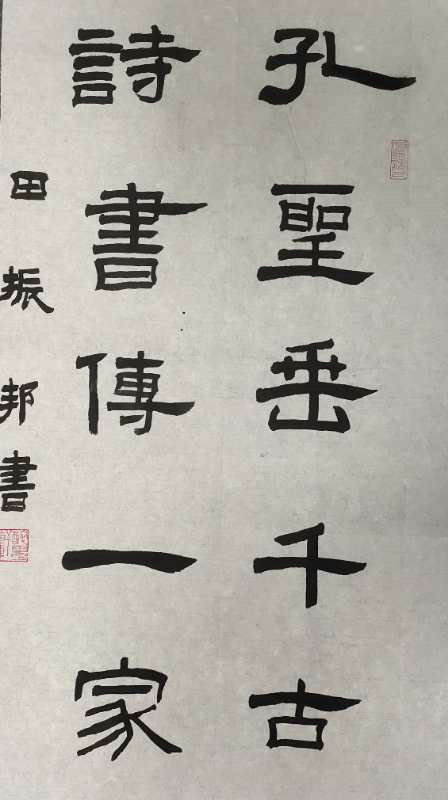 孔聖垂千古
詩書傳一家
田振邦書